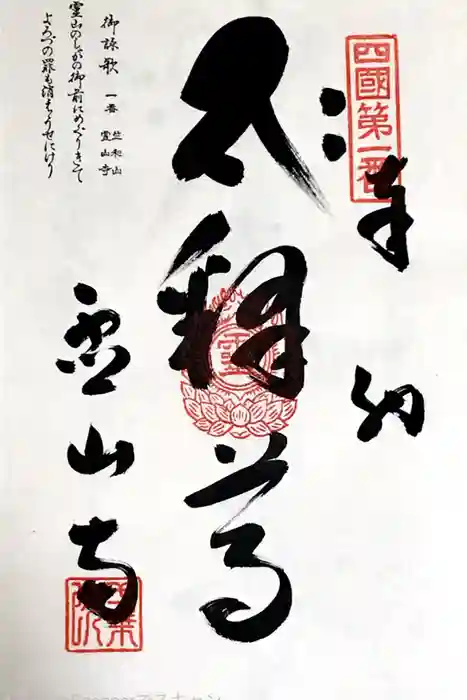 四國第一番
奉納
釋尊
霊山寺
御詠歌 一番 竺和山 霊山寺
霊山のしかの御前にめぐりきて
よろづの罪も消えうせにけり
霊